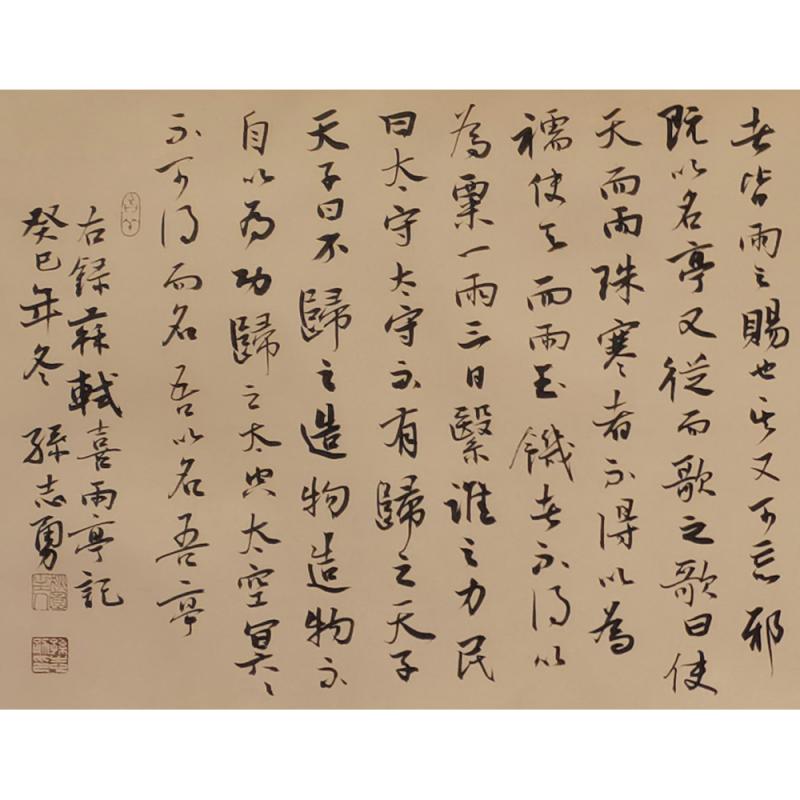 者皆雨之賜也其又可忘邪
既以名亭又從而歌之歌曰使
天而雨珠寒者不得以為
襦使天而雨玉饑者不得以
為粟一雨三日繄誰之力民
曰太守太守不有歸之天子
天子曰不歸之造物造物不
自以為功歸之太空太空冥々
不可得而名吾以名吾亭
右錄蘇軾喜雨亭記
癸巳年冬 孫志勇